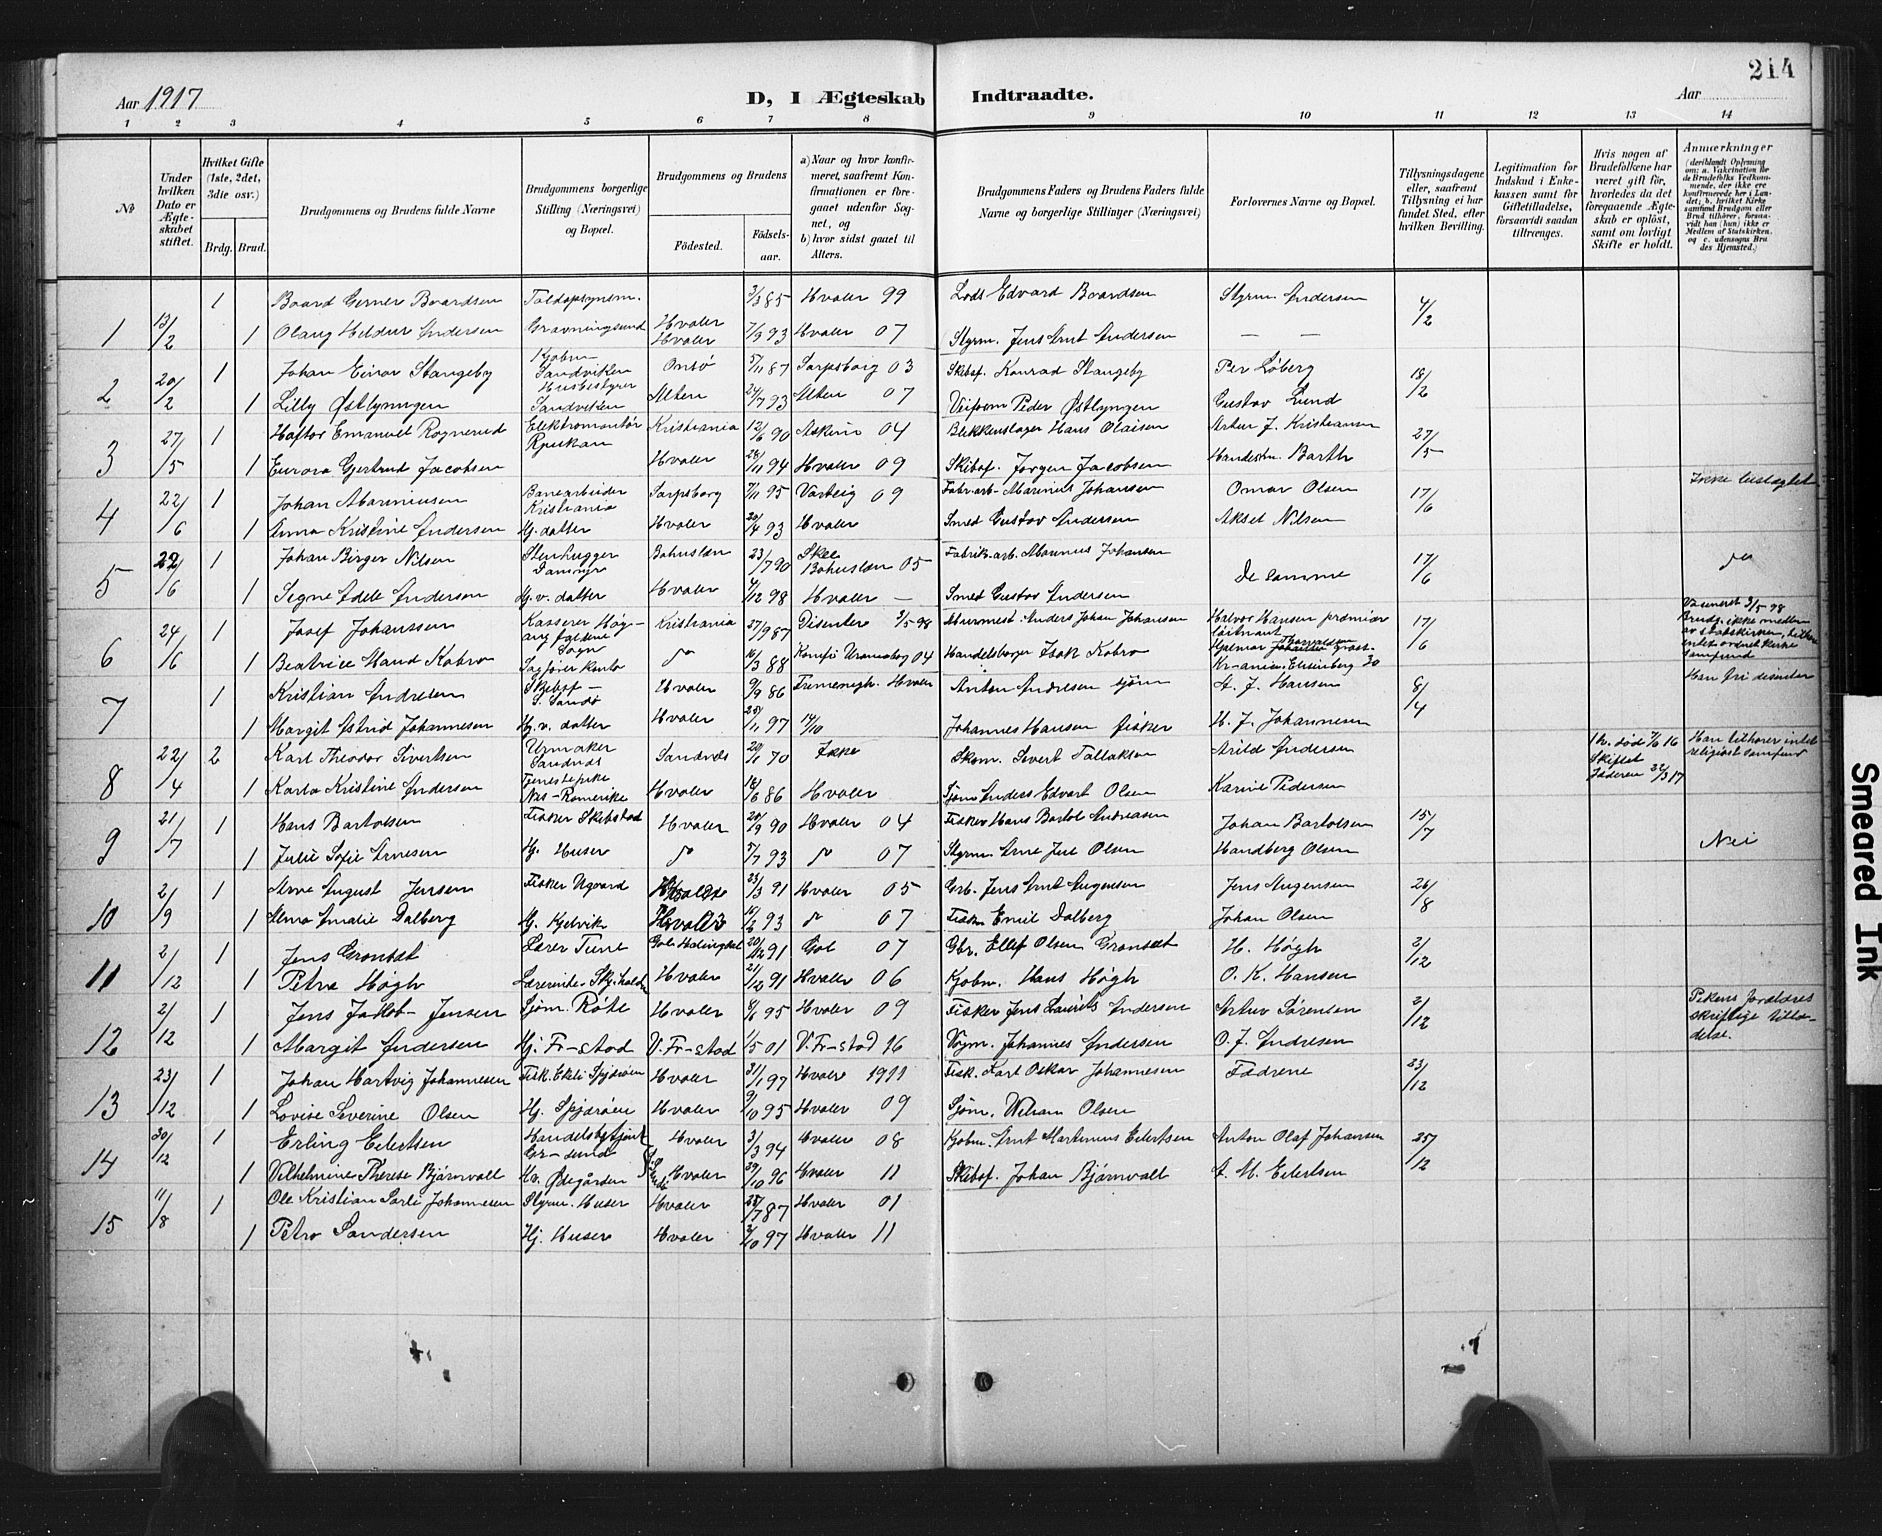 214
Aar 1917
D, I Ægteskab Indtraadte.
Aar
1 2 3 4 5 6 7 8 9 10 11 12 13 14
No
Under hvilken Dato er Ægteskabet stiftet.
Hvilket Gifte (1ste, 2det, 3die osv.)
Brdg. Brud.
Brudgommens og Brudens fulde Navne
Brudgommens borgerlige Stilling (Næringsvei) og Bopæl.
Brudgommens og Brudens
Födested. Födsels-aar.
a) Naar og hvor konfirmeret, saafremt Konfirmationen er foregaaet udenfor Sognet, og
b) hvor sidst gaaet til Alters.
Brudgommens Faders og Brudens Faders fulde Navne og borgerlige Stillinger (Næringsvei)
Forlovernes Navne og Bopæl.
Tillysningsdagene eller, saafremt Tillysning ei har fundet Sted, efter hvilken Bevilling.
Legitimation for Indskud i Enkekassen samt for Giftetilladelse, forsaavidt saadan tiltrænges.
Hvis nogen af Brudefolkene har været gift för, hvorledes da det foregaaende Ægteskab er oplöst, samt om lovligt Skifte er holdt.
Anmærkninger
(deriblandt Oplysning om: a. Vakcination for de Brudefolks Vedkommende, der ikke ere konfirmerede her i Landet; b. hvilket Kirkesamfund Brudgom eller Brud tilhörer, forsaavidt han (hun) ikke er Medlem af Statskirken, og c. udensogns Brudes Hjemsted.)
1 13/2 1 Baard Gerner Baardsen Toldopsynsm. 3/3 85 Hvaler 99 Lods Edvard Baardsen Styrm. Andersen 4/2
1 Olaug Heldur Andersen Gravningsund Hvaler Hvaler 7/9 93 Hvaler 07 Styrm. Jens Arnt Andersen — —
2 20/2 1 Johan Einar Stangeby Kjøbm Sandviken Onsø 5/11 87 Sarpsborg 03 Skibsf. Konrad Stangeby Per Løberg 18/2
1 Lilly Østlyngen Husbestyrer Sandviken Alten 24/7 93 Alten 07 Peder Østlyngen Gustav Lund
3 27/5 1 Haftor Emanuel Rognerud Elektromontør Rjukan Kristiania 12/6 90 Askim 04 Blikkenslager Hans Olaisen Artur J. Kristiansen 27/5
1 Eurora Gjertrud Jacobsen Hvaler 28/11 94 Hvaler 09 Skibsf. Jørgen Jacobsen Handelsm. Barth
4 22/6 1 Johan Marinius en Banearbeider Kristiania Sarpsborg 7/11 95 Varteig 09 Fabr.arb. Marinius Johansen Omar Olsen 17/6 Ikke beslægtet
1 Anna Kristine Andersen Hj. datter Hvaler 20/4 93 Hvaler Smed Gustav Andersen Aksel Nilsen
5 22/6 1 Johan Birger Nilsen Stenhugger Bohuslen 23/7 90 Skee Bohuslen 05 Fabrik.arb. Marinus Johansen De samme 17/6
1 Signe Adele Andersen Hj. v. datter Hvaler 4/12 98 Hvaler — Smed Gustav Andersen
6 24/6 1 Josef Johanssen Kasserer Kristiania 27/9 87 Disenter 3/5 98 Murmest. Anders Johan Johansen Halvor Hansen premiørløitnant 17/6 Vaxineret 3/5 98 Brudg. ikke medlem av statskirken,
1 Beatrice Maud Kobro Sagfører kontor 16/3 88 Konfi Uranienborg 04 Handelsborger Isak Kobro Hjelmar Kr-ania
7 1 Kristian Andresen Skibsf — S. Sandø Hvaler 9/9 86 Frimenigh. Hvaler Anton Andresen sjøm A. J. Hansen 8/4 Han fri disenter
1 Margit Astrid Johannesen Hj. v. datter Hvaler 25/1 97 14/10 Johannes Hansen fisker H. J. Johannesen
8 22/4 2 Karl Theodor Sivertsen Urmaker Sandnes Sandnes 20/1 70 Ikke Skom. Sivert Tallaksen Arild Andersen 1 h. død 7/6 16 Skiftet Jæderen 22/3 17 Han tilhører intet religiøst samfund
1 Karla Kristine Andersen Tjenestepike Nes-Romerike Hvaler 18/6 86 Hvaler Sjøm Anders Edvart Olsen Karine Pedersen
9 21/7 1 Hans Bartolsen Fisker Skibstad Hvaler 20/9 90 Hvaler 04 Fisker Hans Bartol Andreasen Johan Bartolsen 15/7
1 Julie Sofie Arnesen Hj. Huser 5/7 93 07 Styrm. Arne Juel Olsen Handberg Olsen Nei
10 2/9 1 Arne August Jensen Fisker Ugaard Hvaler 23/3 91 Hvaler 05 Grb. Jens Arnt Augensen Jens Augensen 26/8
1 Alma Amalie Dalberg Hj. Kjelvik Hvaler 16/2 93 07 Fisker Emil Dalberg Johan Olsen
11 2/12 1 Jens Gronset Lærer Tune Gol Hallingdal 20/12 91 Gol 07 Gbr. Ellef Olsen Gronset H. Høgh 2/12
1 Petra Høgh Lærerinde Hvaler 21/12 91 Hvaler 06 Kjøbm. Hans Høgh O. K. Hansen
12 2/12 1 Jens Jakob Jensen Sjøm. Røte Hvaler 8/6 95 Hvaler 09 Fisker Jens Laurits Andersen Artur Sørensen 2/12 Pikens forældres skriftlige tilladelse.
1 Margit Andersen Hj. Fr-stad V. Fr-stad 1/5 01 V. Fr-stad 16 Vogm. Johannes Andersen O. J. Andresen
13 23/12 1 Johan Hartvig Johannesen Fisk. Ekeli Spjærøen Hvaler 31/1 97 Hvaler 1911 Fisk. Karl Oskar Johannesen Fædrene 23/12
1 Lovise Severine Olsen Hj. Spjærøen Hvaler 9/10 95 Hvaler 09 Sjøm. Wilian Olsen
14 30/12 1 Erling Eilertsen Handelsbetjent Hvaler 3/3 94 Hvaler 08 Kjøbm. Arnt Martinius Eilertsen Anton Olaf Johansen 25/12
1 Vilhelmine Therese Bjørnvall Hv. Ødegården Hvaler 29/10 96 Hvaler 11 Skibsf. Johan Bjørnvall A. M. Eilertsen
15 11/8 1 Ole Kristian Sarli Johannesen Styrm. Huser Hvaler 28/7 87 Hvaler 01
1 Petra Sandersen Hj. Huser Hvaler 3/10 97 Hvaler 11
Smeared Ink